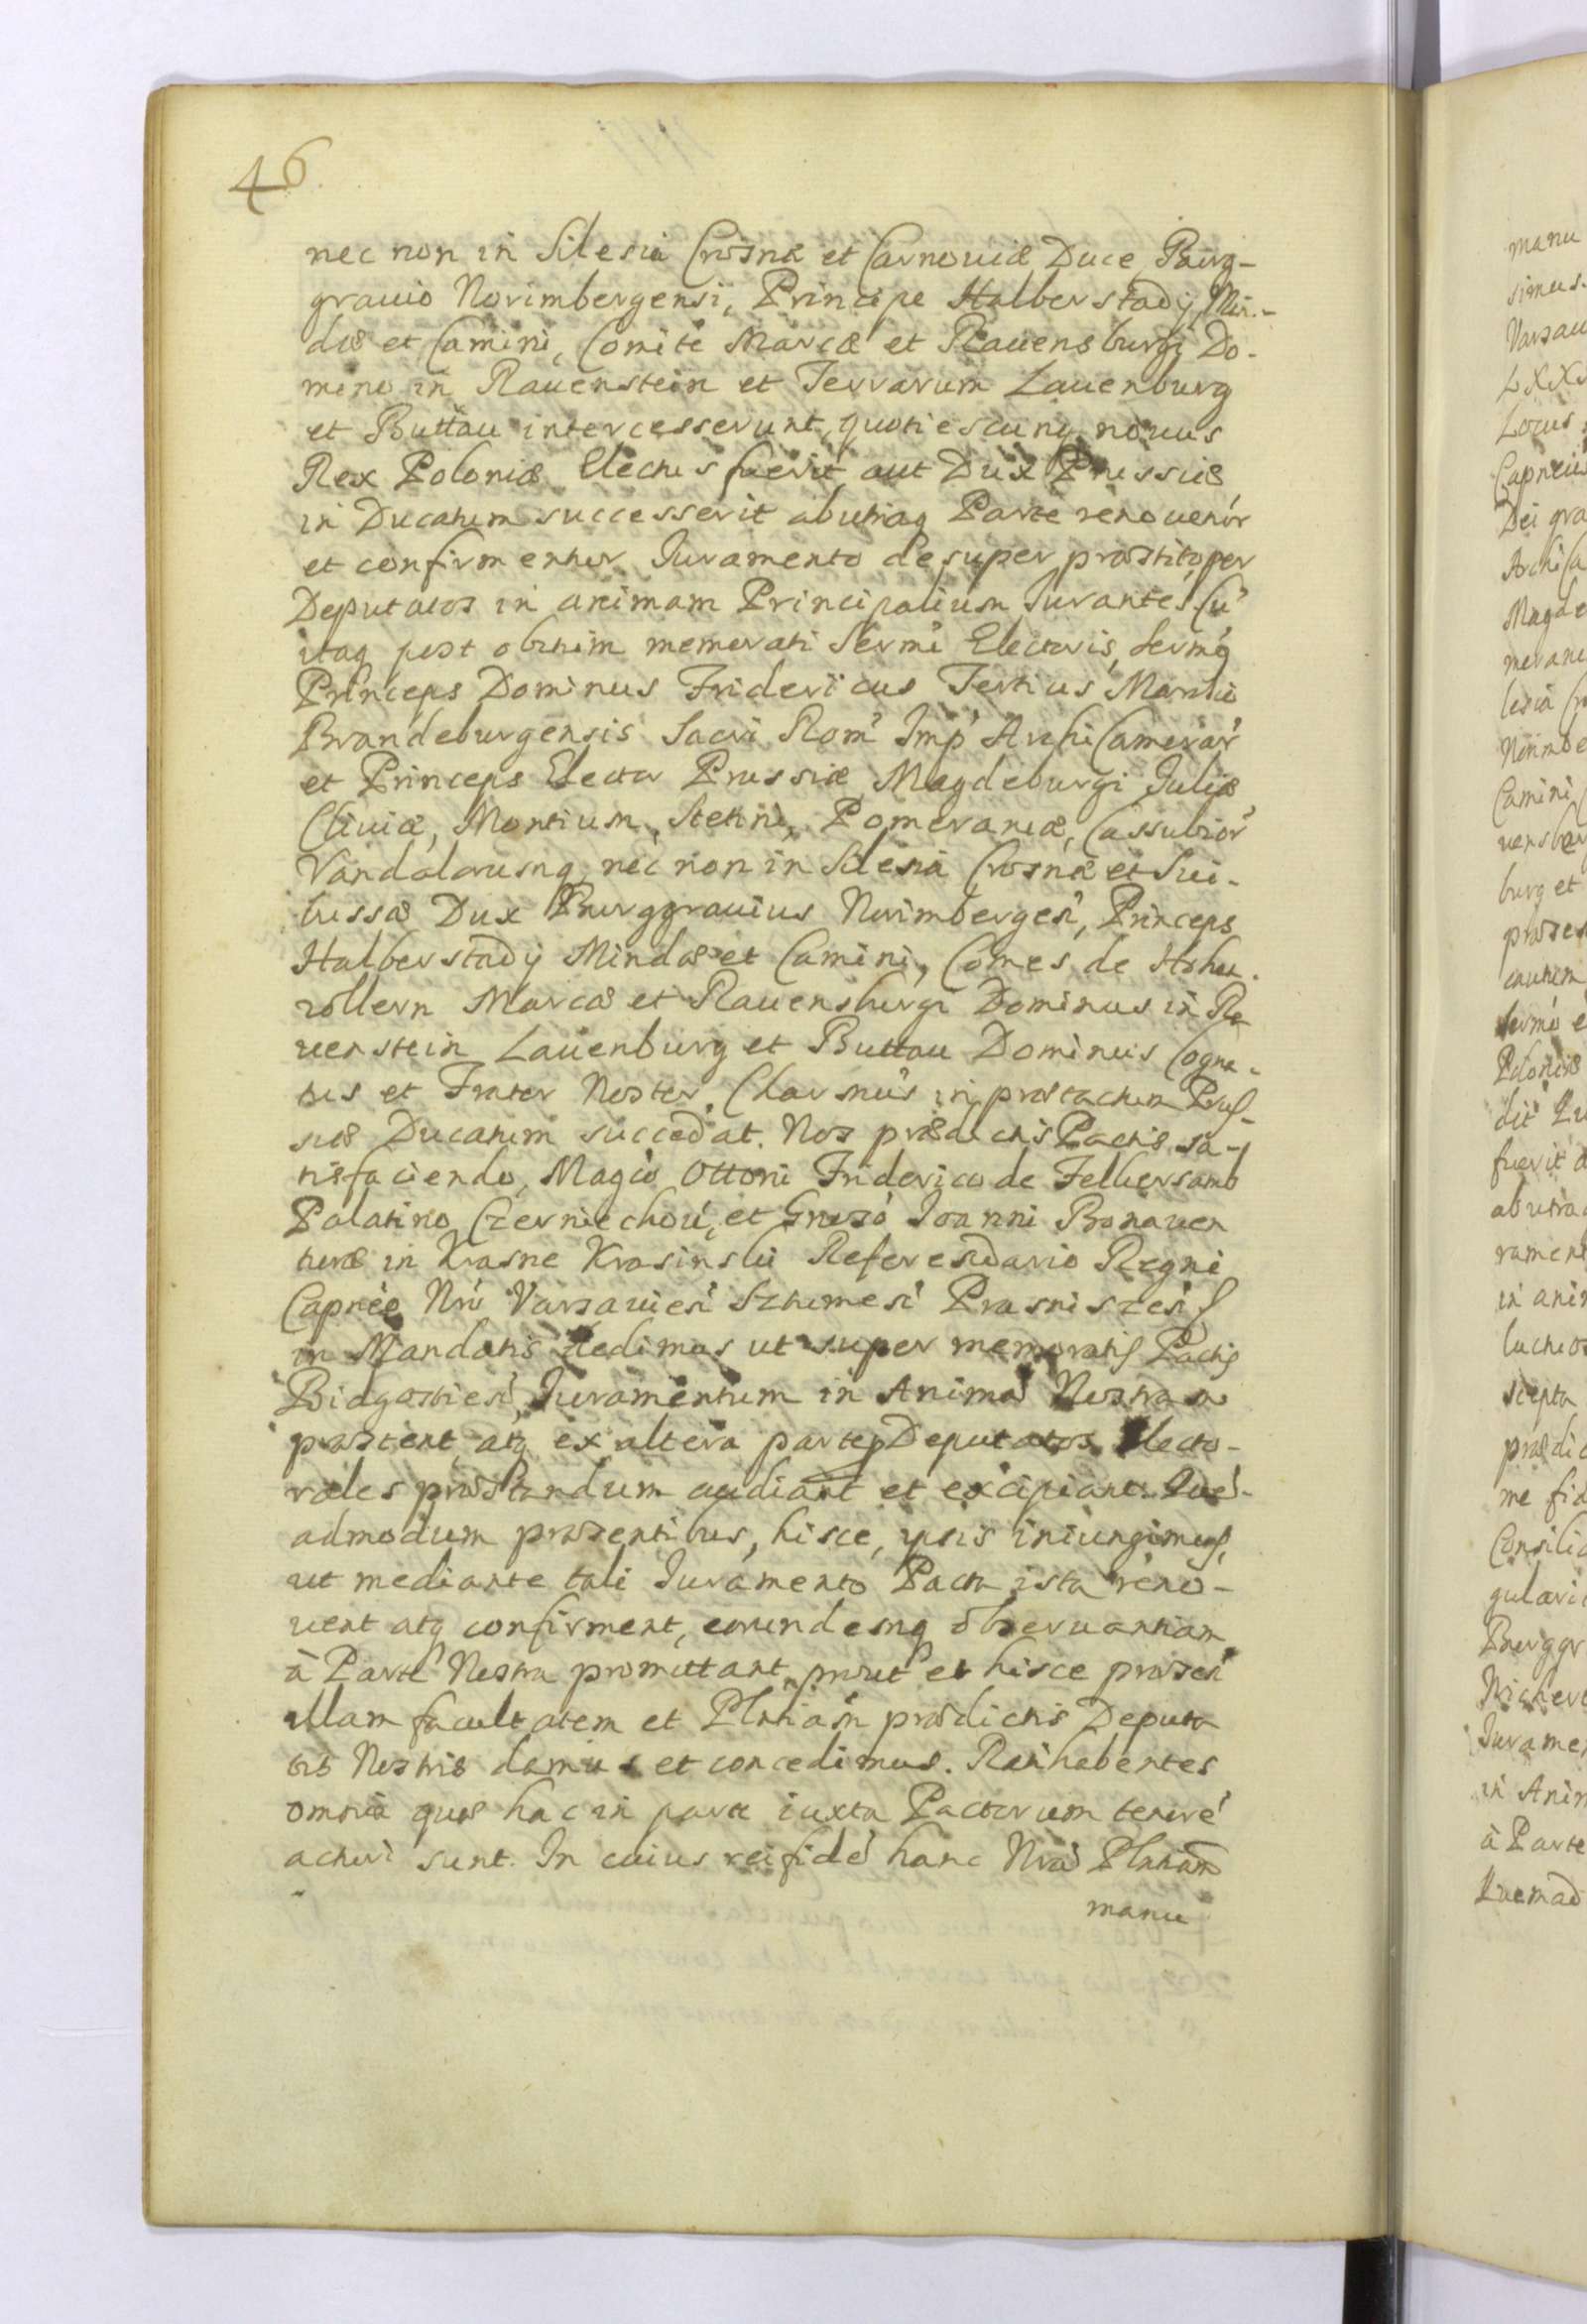 46
nec non in Silesia Crosnæ et Carnoviæ Duce, Burg-
gravio Norimbergensi, Principe Halberstadij, Min-
dæ et Camini, Comite Marcæ et Ravensburgi Do-
mino in Ravenstein et Terrarum Lauenburg
et Buttau intercesserunt, quotiescunq novus
Rex Poloniæ Electus fuerit, aut Dux Prussiæ
in Ducatum successerit abutraq Parte renouent͛r
et confirmentur Iuramento desuper præstito, per
Deputatos in animam Principalium Iurantes. Cu͂
itaq post obitum memorati Sermi Electoris, Sermq
Princeps Dominus Fridericus Tertius Marchio
Brandeburgensis Sacri Rom͂ Imp͂ Archi Camerar͂
et Princeps Elector Prussiæ, Magdeburgi Juliæ
Cliviæ, Montium, Stetini, Pomeraniæ, Cassubior͂
Vandalorumq, nec non in Silesia Crosnæ et Sui-
bussæ Dux Burggrauius Norimbergen͂, Princeps
Halberstadij Mindæ et Camini, Comes de Hohen-
zollern Marcæ et Ravensburgi Dominus in Ra
uenstein Lauenburg et Buttau Dominus Cogna-
tus et Frater Noster Charmus in præfatum Prus-
siæ Ducatum succedat. Nos prædictis Pactis sa-
tisfaciendo, Magco Ottoni Friderico de Felkersamb
Palatino Czerniechovi, et Gnroso Joanni Bonauen
turæ in Krasne Krasinski Referendario Regni
Capneo Nro Varsauien͂ Sztumen͂ Prasniszen͂
in Mandatis dedimus ut super memoratis Pactis
Bidgostien͂, Iuramentum in Anima͂ Nostram
præstent, atq ex altera parte Deputatos Electo-
rales præstandum audiant et excipiant. Que͂-
admodum præsentibus, hisce, ipsis iniungimus,
ut mediante tali Iuramento Pacta ista reno-
uent atq confirment, eorundemq obseruantiam
à Parte Nostra promittant, prout et hisce præsen͂
illam facultatem et Plntiam prædictis Deputa
tis Nostris damus et concedimus. Ratihabentes
omnia quæ hac in parte iuxta Pactorum tenore͂
acturi sunt. In cuius rei fide͂ hanc Nra͂ Plntiam
manu
manu
simus.
Varsau
LXXX
Locus
Capneus
Dei gra
Archi Ca
Magde
merani
lesia Cr
Norimbe
Camini
burg et
Poloniæ
fuerit a
abutra
rament
in anim
luctuos
scepta
prædic
me fid
Consilia
gulari
Burggr
Iuramen
in Anim
à Parte
Quemad